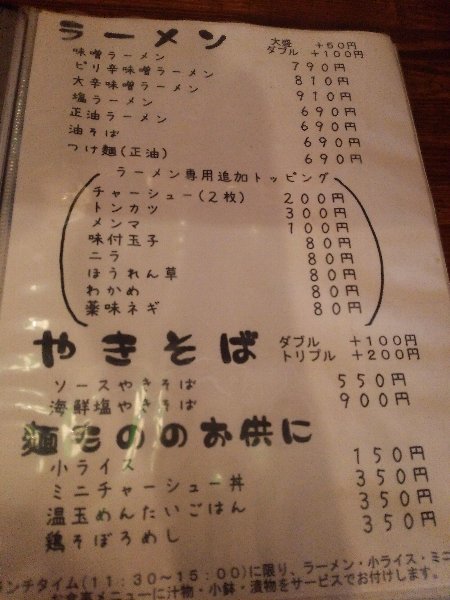 ラーメン 大盛 +50円
ダブル +100円
味噌ラーメン 790円
ピリ辛味噌ラーメン 810円
大辛味噌ラーメン 910円
塩ラーメン 690円
正油ラーメン 690円
油そば 690円
つけ麺(正油) 690円
ラーメン専用追加トッピング
チャーシュー(2枚) 200円
トンカツ 300円
メンマ 100円
味付玉子 80円
ニラ 80円
ほうれん草 80円
わかめ 80円
薬味ネギ 80円
やきそば ダブル +100円
トリプル +200円
ソースやきそば 550円
海鮮塩やきそば 900円
麺たののお供に
小ライス 150円
ミニチャーシュー丼 350円
温玉めんたいごはん 350円
鶏そぼろめし 350円
ンチタイム(11:30~15:00)に限り、ラーメン・小ライス・ミニ
お食事メニューに汁物・小鉢・漬物をサービスでお付けします。